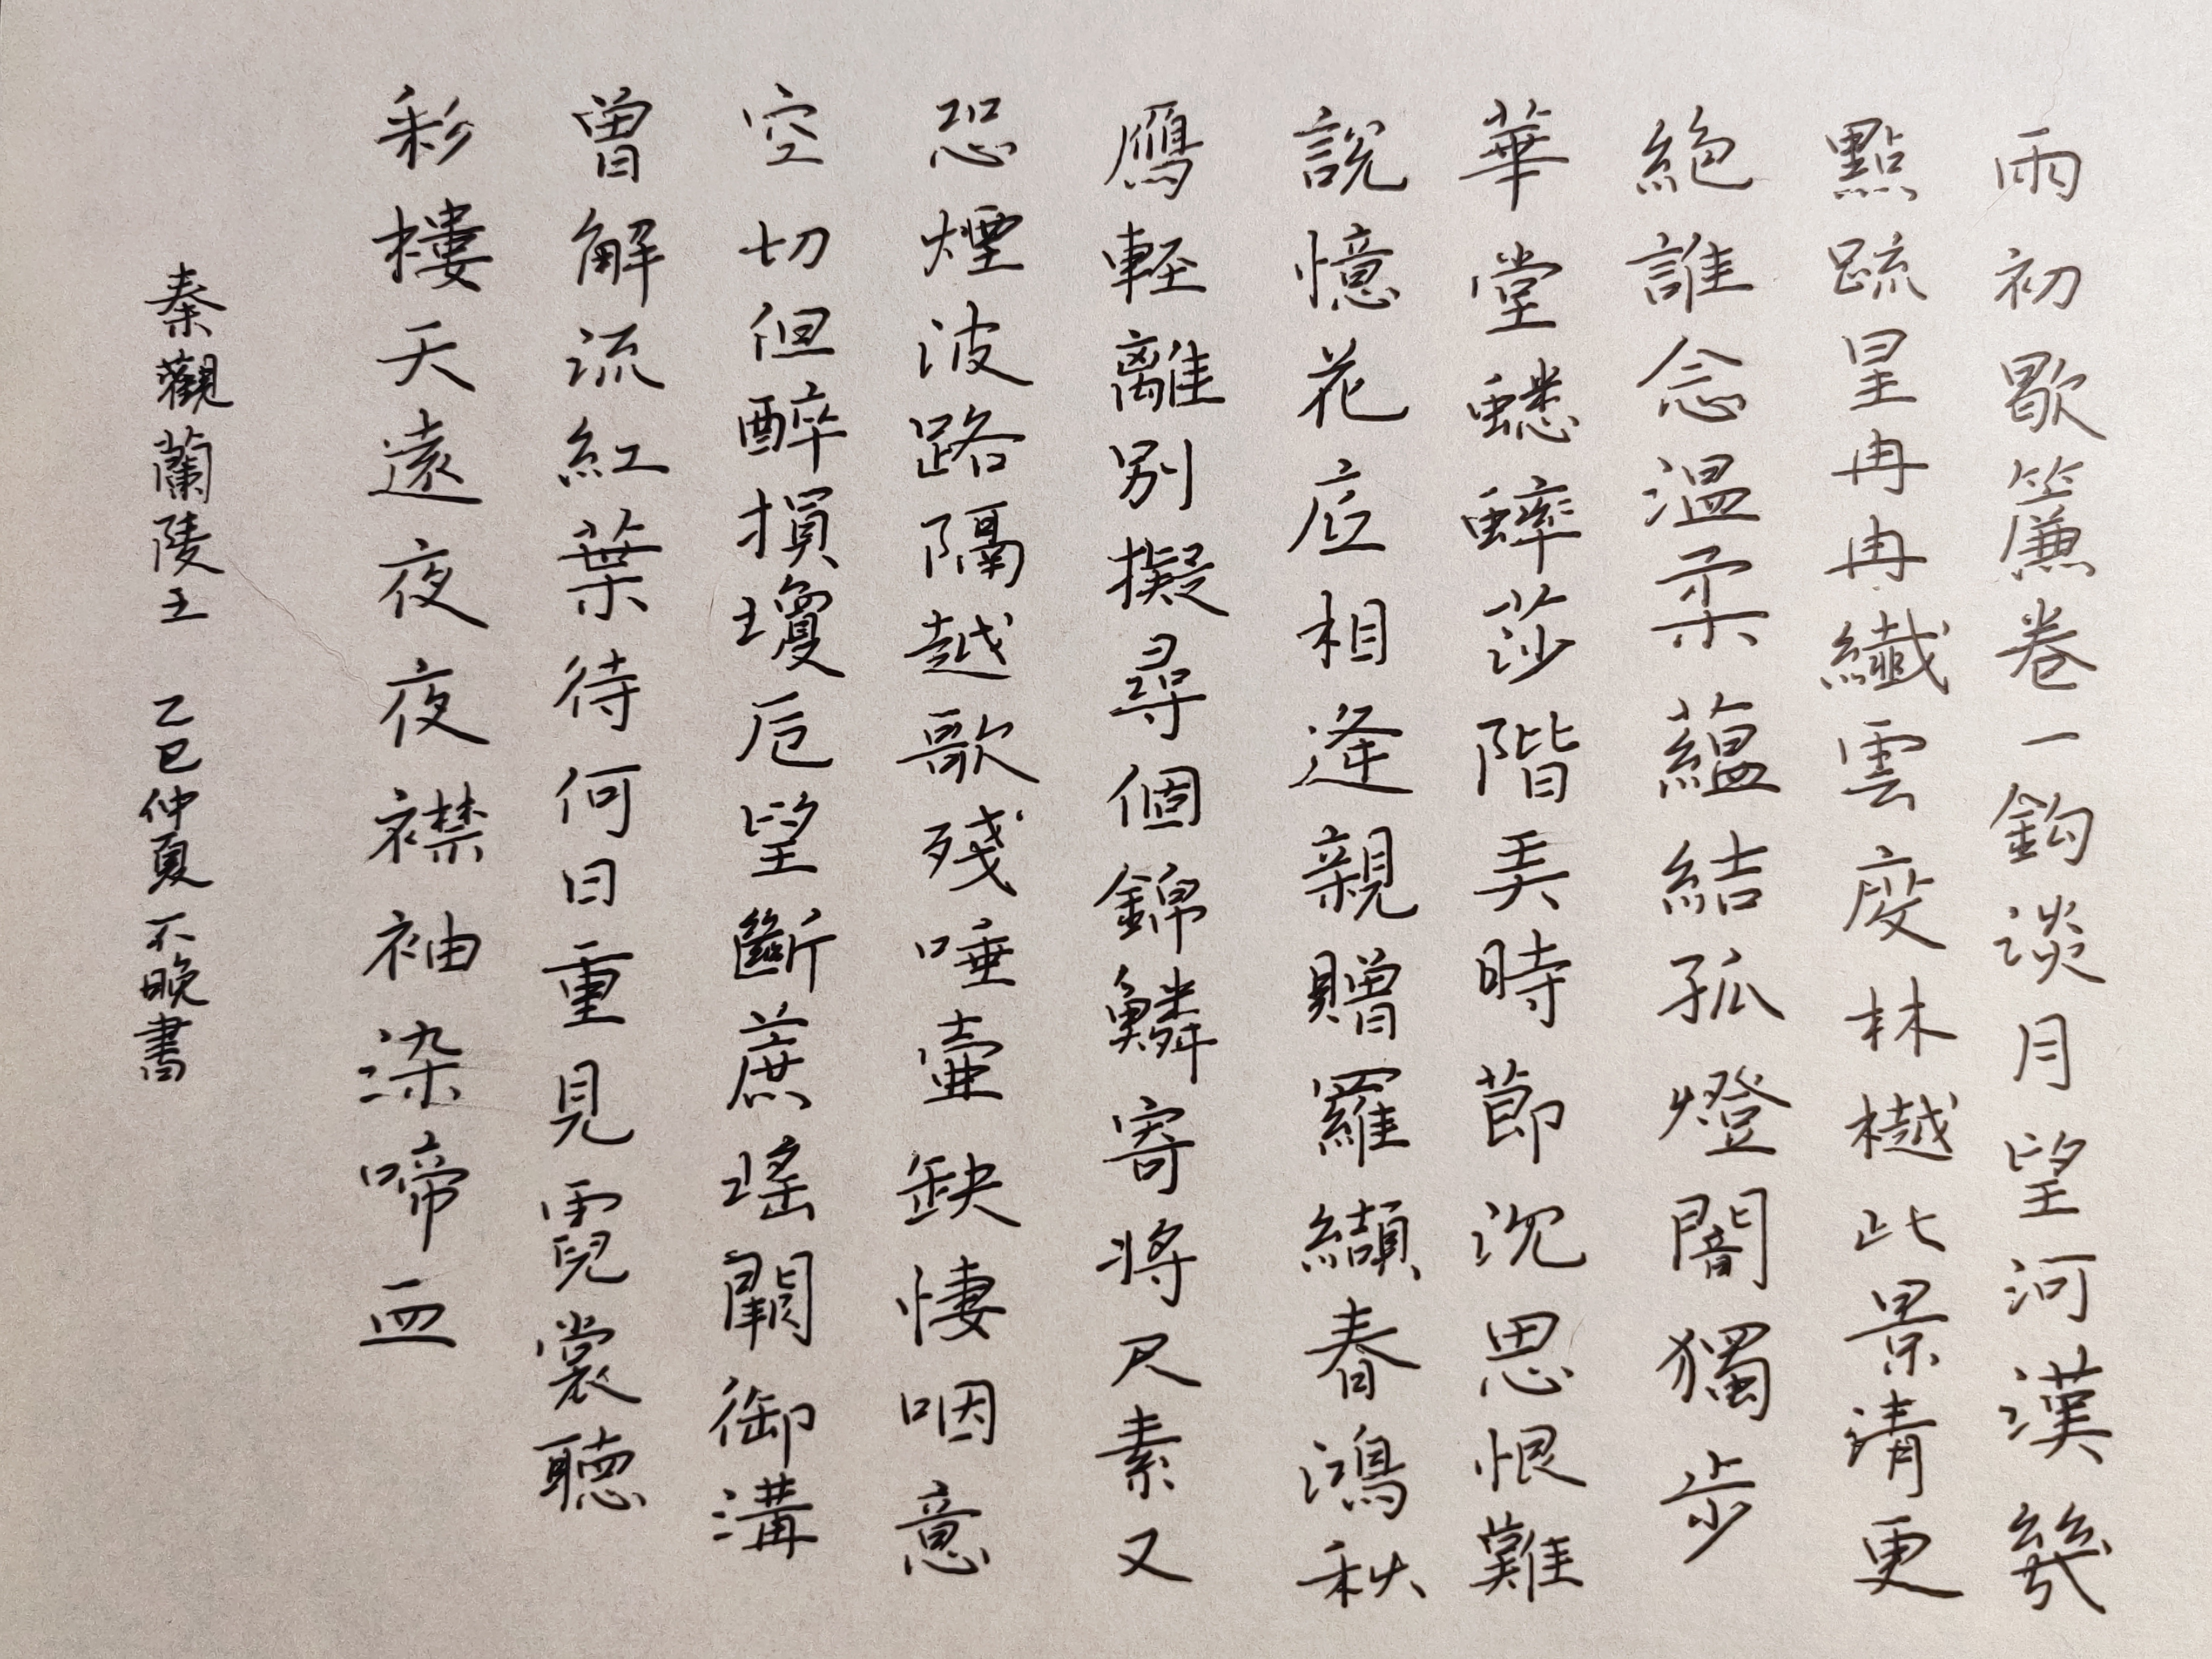 雨初歇簾卷一鈎淡月望河漢幾
點疏星冉冉纖雲度林樾此景清更
絕誰念溫柔蘊結孤燈闇獨步
華堂蟋蟀莎階弄時節沈思恨難
說憶花底相逢親贈羅纈春鴻秋
鴈輕離別擬尋個錦鱗寄將尺素又
恐煙波路隔越歌殘唾壺缺悽咽意
空切但醉損瓊卮望斷蔗瑤闕御溝
曾解流紅葉待何日重見霓裳聽
彩樓天遠夜夜襟袖染啼血
秦觀蘭陵王 乙巳仲夏不晚書